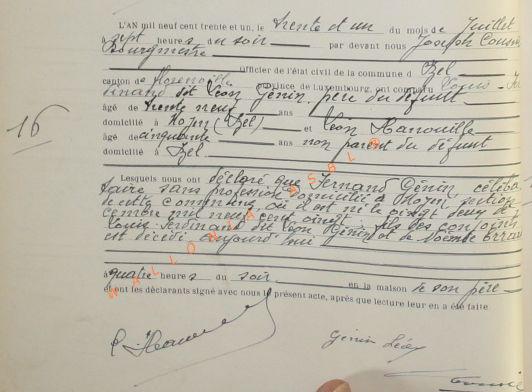 L'AN mil neuf cent trente et un, le trente et un du mois de Juillet
à sept heures du soir par devant nous Joseph
Bourgmestre
Officier de l'état civil de la commune d'Izel
canton de Florenville province de Luxembourg, ont comparu Louis
dit Léon Génin, père du défunt
âgé de trente neuf ans
domicilié à Moyen (Izel) et Léon Hanouille
âgé de cinquante ans non parent du défunt
domicilié à Izel
16
Lesquels nous ont déclaré que Fernand Génin, céliba-
taire sans profession domicilié à Moyen section
de cette commune, où il est né le vingt deux
cembre mil neuf cent vingt fils des conjoints
Louis Ferdinand dit Léon Génin et de
est décédé aujourd'hui
à quatre heures du soir
en la maison de son père
et ont les déclarants signé avec nous le présent acte, après que lecture leur en a été faite
Génin Léon
WALLONIA ASBL